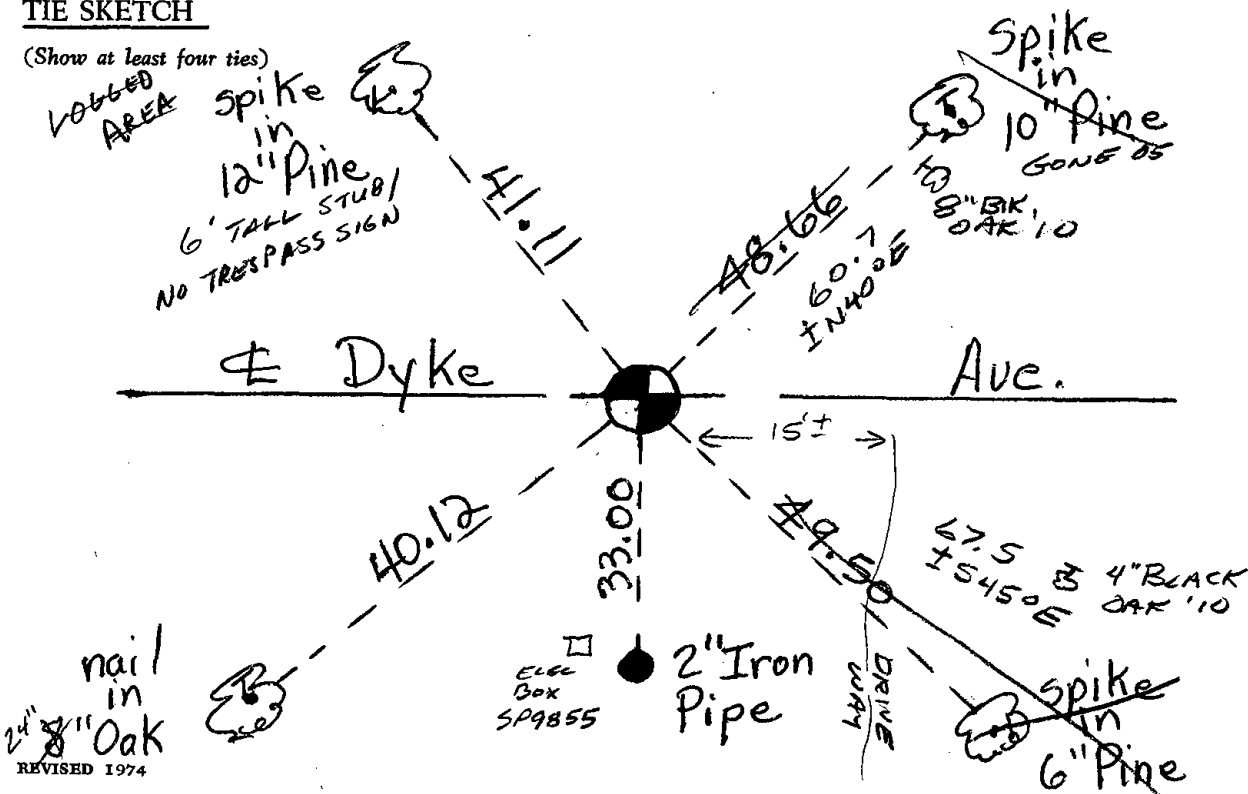 TIE SKETCH
(Show at least four ties)
LOGGED
AREA
spike
in
12" Pine
6' TALL STUB/
NO TRESPASS SIGN
41.11
48.66
60.7
± N40°E
spike
in
10" Pine
GONE 05
8" BLK.
OAK '10
℄ Dyke Ave.
15'±
40.12
33.00
49.50
67.5
± S45°E
4" BLACK
OAK '10
nail
in
24" 8" Oak
REVISED 1974
ELEC
BOX
SP9855
2" Iron
Pipe
DRIVE
WAY
spike
in
6" Pine